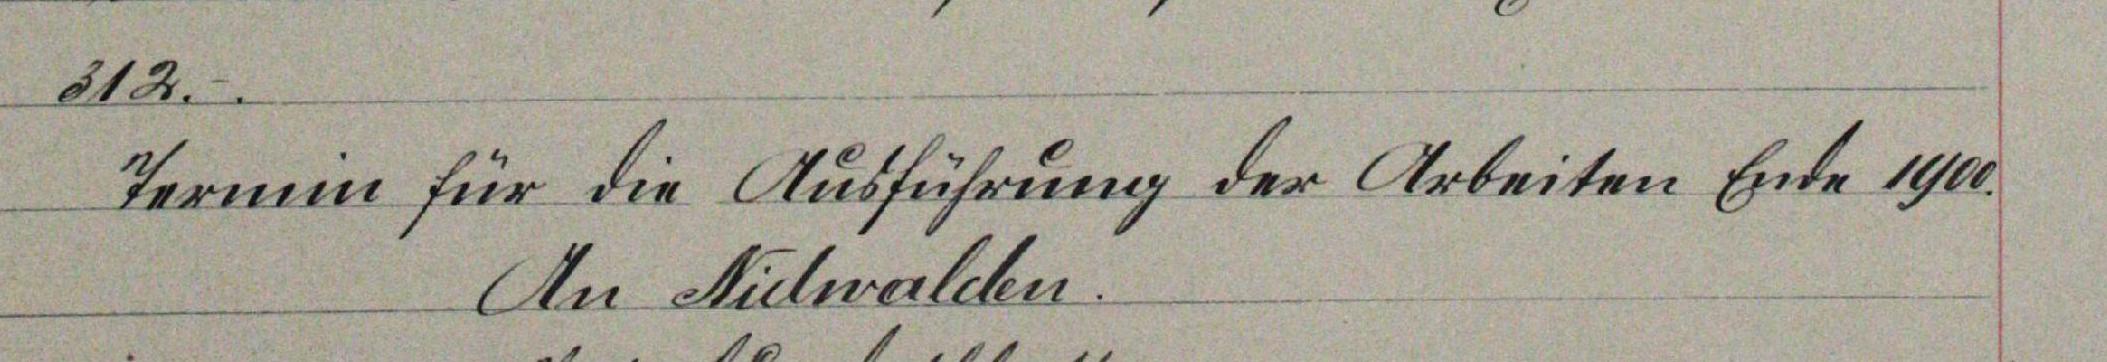 312.-.
Termin für die Ausführung der Arbeiten Ende 1900.
An Nidwalden.